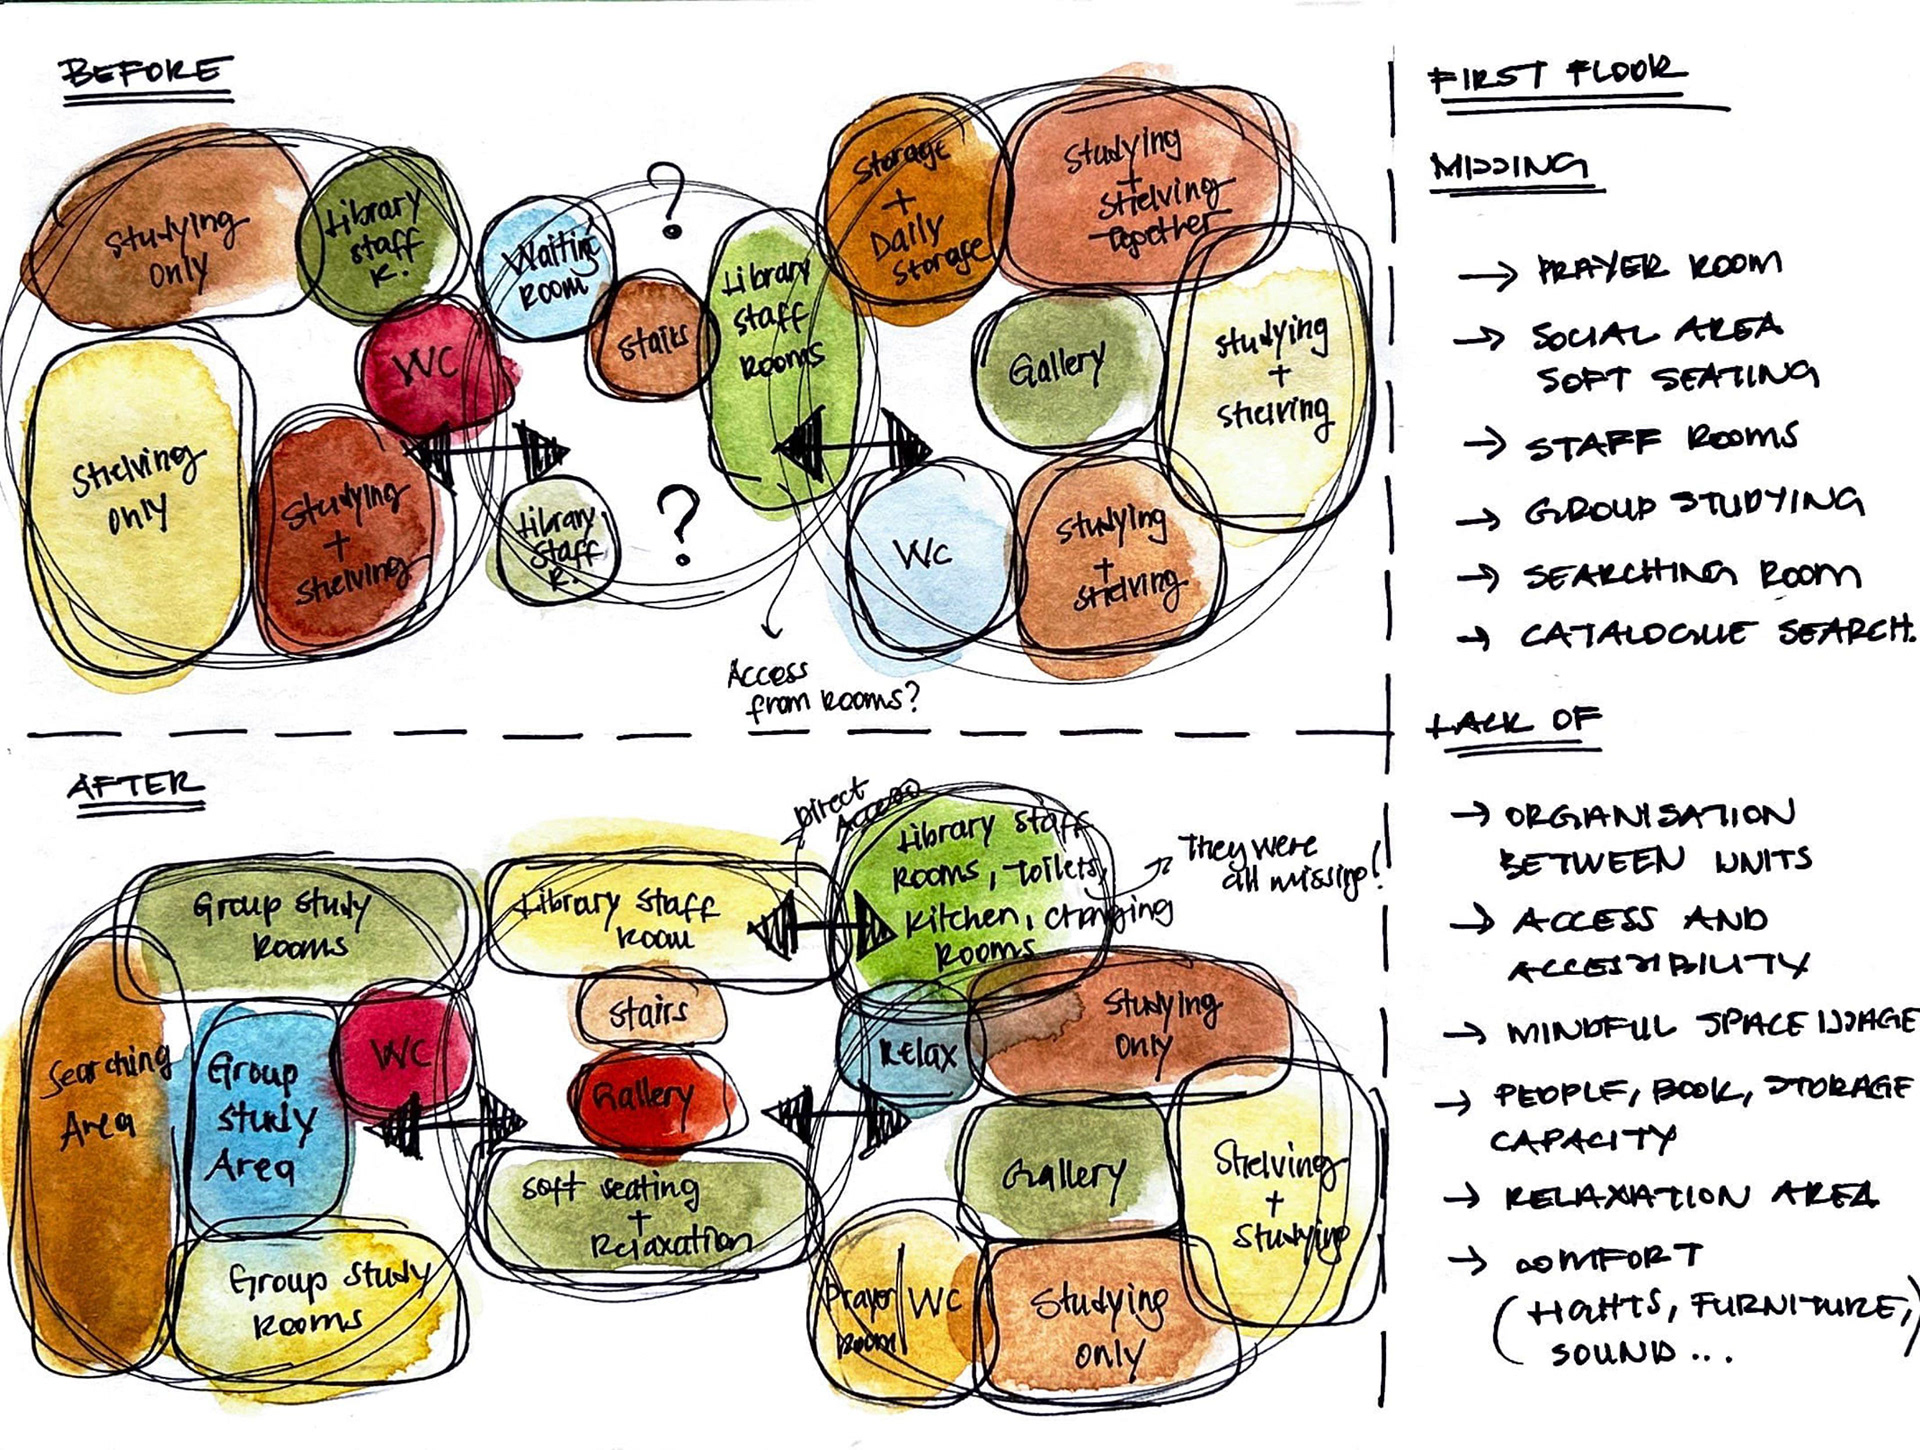 BEFORE
Studying
only
Library
staff
R.
Waiting
room
?
Stairs
WC
Shelving
only
Studying
+
shelving
Library
Staff
R.
?
Library
staff
rooms
Storage
+
Daily
storage
Studying
+
shelving
together
Gallery
studying
+
shelving
WC
studying
+
shelving
Access
from rooms?
AFTER
Group study
rooms
Searching
Area
Group
study
Area
WC
Group study
rooms
Library staff
room
Direct
Access
Library staff
rooms, toilets,
kitchen, changing
rooms
They were
all missing!
Stairs
Gallery
soft seating
+
Relaxation
Relax
Studying
only
Gallery
Shelving
+
studying
Prayer
room
WC
Studying
only
FIRST FLOOR
MISSING
→ PRAYER ROOM
→ SOCIAL AREA
SOFT SEATING
→ STAFF ROOMS
→ GROUP STUDYING
→ SEARCHING ROOM
→ CATALOGUE SEARCH.
LACK OF
→ ORGANISATION
BETWEEN UNITS
→ ACCESS AND
ACCESSIBILITY
→ MINDFUL SPACE USAGE
→ PEOPLE, BOOK, STORAGE
CAPACITY
→ RELAXATION AREA
→ COMFORT
(LIGHTS, FURNITURE,)
SOUND...